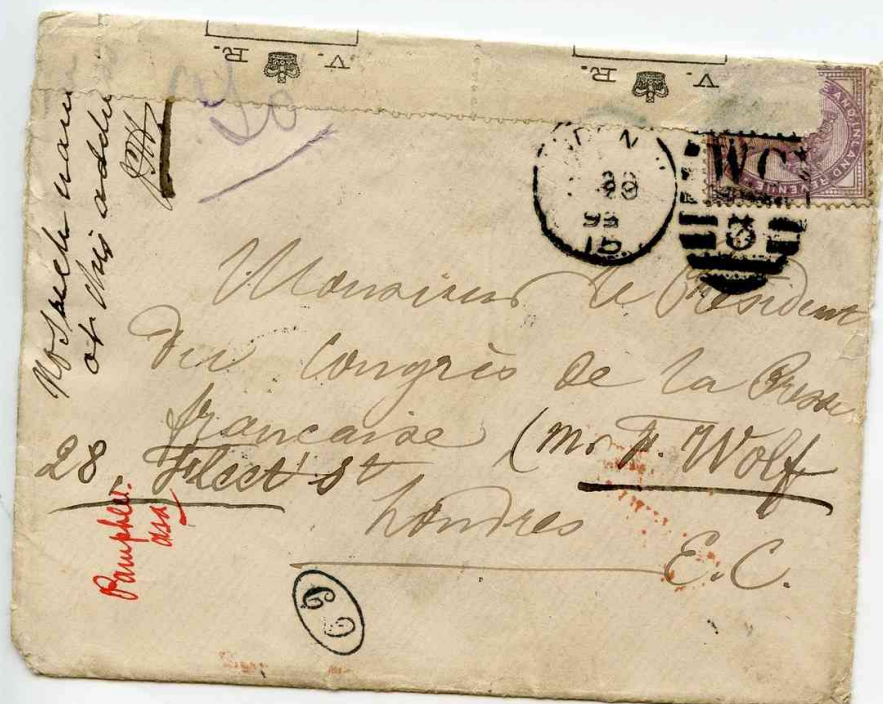 V. R.
V. R.
INLAND REVENUE
WC
No such name
at this addre
Monsieur le Président
du Congrès de la Presse
française (Mr F. Wolf
28, Fleet St
Londres
E.C.
Pamphlet
69